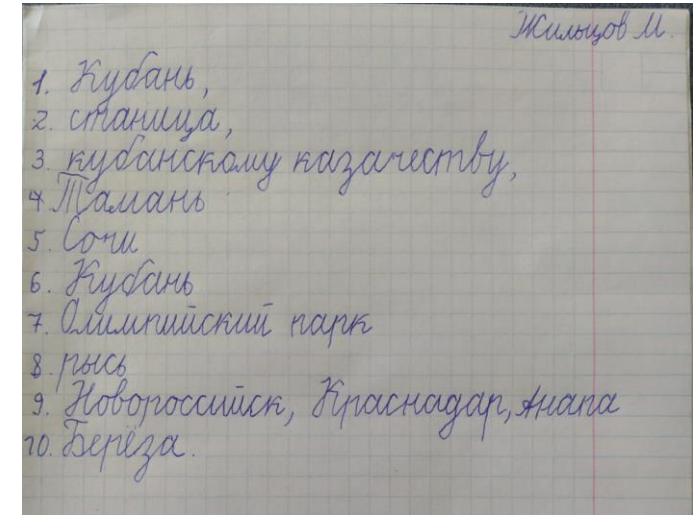 Жильцов М.
1. Кубань,
2. станица,
3. кубанскому казачеству,
4. Тамань
5. Сочи
6. Кубань
7. Олимпийский парк
8. рысь
9. Новороссийск, Краснадар, Анапа
10. Берёза.